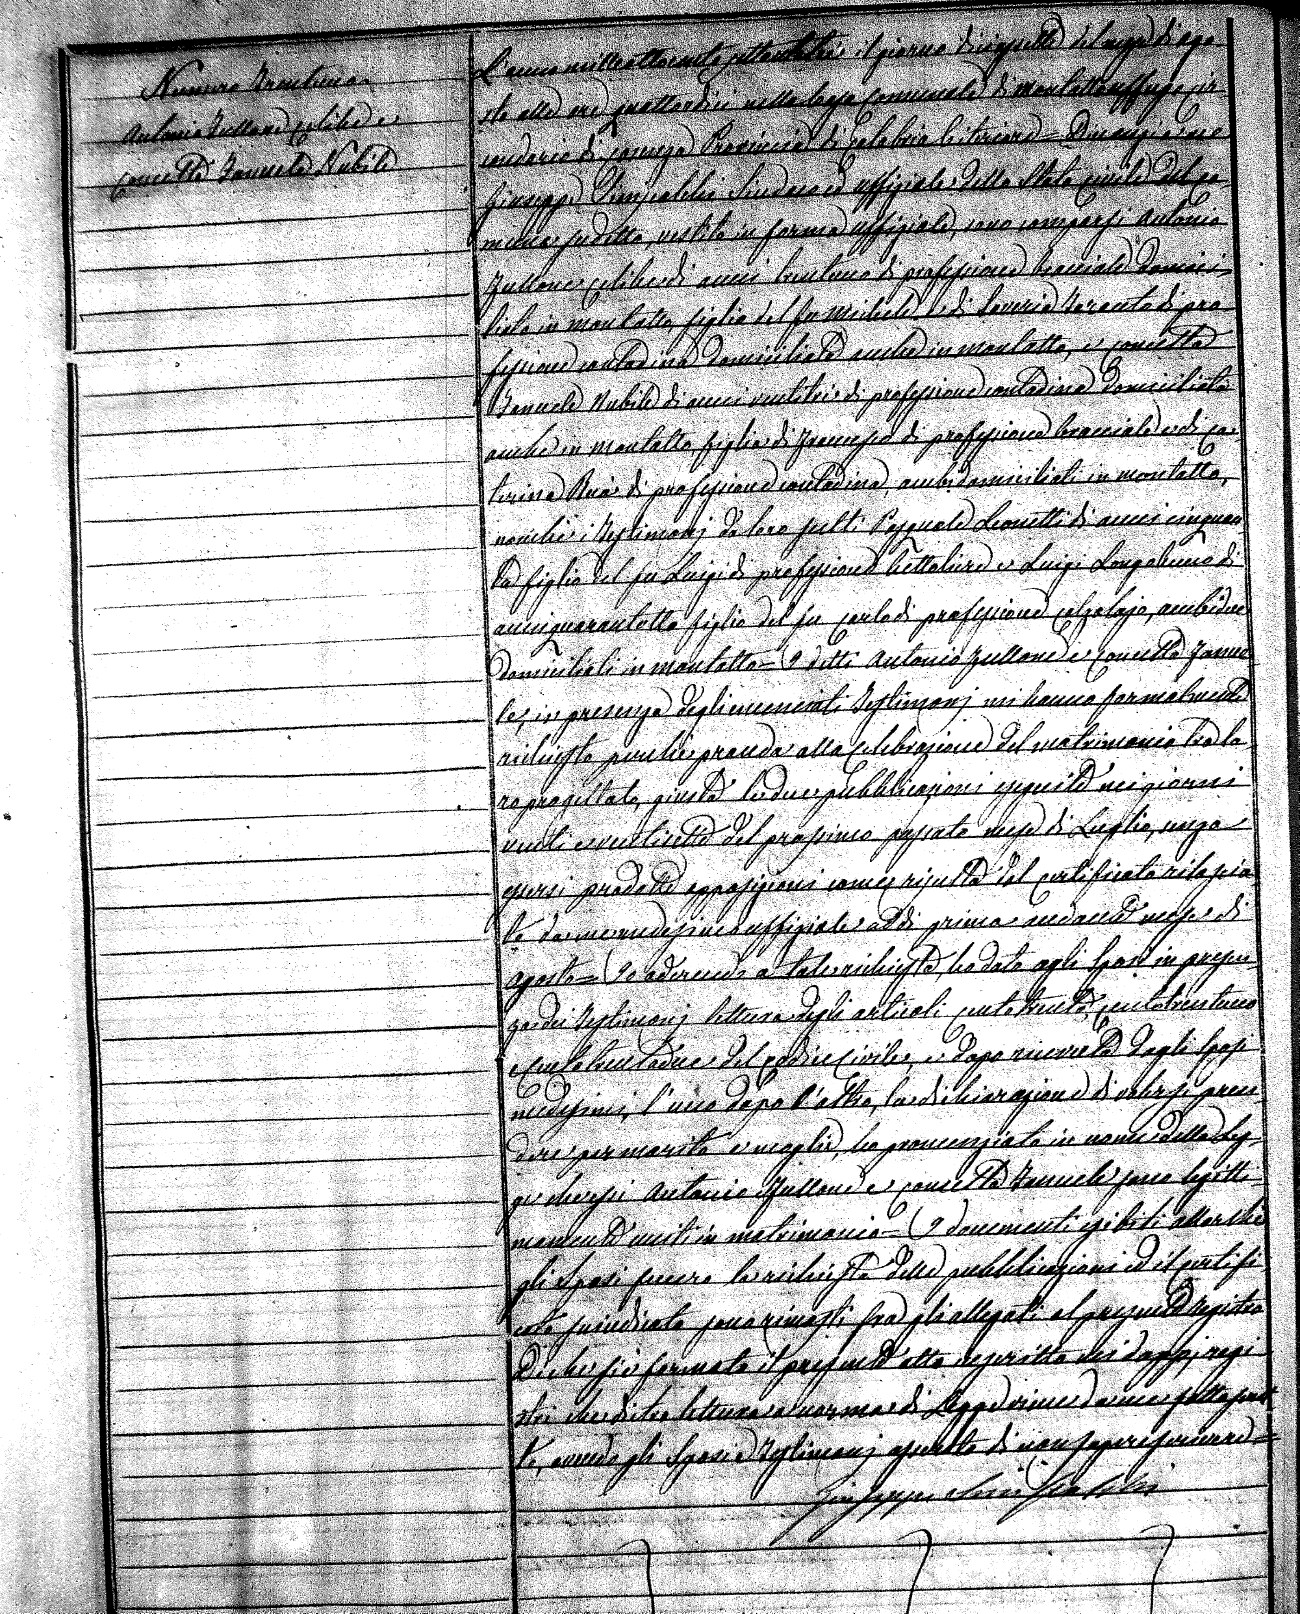 Numero Trentuno
Antonio Zullone celibe e
Concetta Iannele Nubile
L'anno milleottocento il giorno diciassette del mese di ago
sto alle ore quattordici nella Casa Comunale di Montaltouffugo cir
condario di Cosenza Provincia di Calabria Citeriore = Dinanzi a me
Giuseppe Sindaco ed uffiziale dello Stato civile del Co
mune sudetto, vestito in forma uffiziale, sono comparsi Antonio
Zullone celibe di anni trentuno di professione bracciale domici
liato in Montalto figlio del fu Michele e di Saveria di pro
fessione contadina domiciliata anche in Montalto, e Concetta
Iannele Nubile di anni ventitre di professione contadina domiciliata
anche in Montalto figlia di Francesco di professione bracciale e di Ca
terina di professione contadina, ambi domiciliati in Montalto,
nonche i Testimonj da loro scelti Pasquale Leonetti di anni cinquan
ta figlio del fu Luigi di professione e Luigi di
anni quarantotto figlio del fu Carlo di professione calzolajo, ambidue
domiciliati in Montalto = I detti Antonio Zullone e Concetta Ianne
le, in presenza degli enunciati Testimonj mi hanno formalmente
richiesto perche proceda alla celebrazione del matrimonio tra lo
ro progettato, giusta le due pubblicazioni eseguite nei giorni
venti e ventisette del prossimo passato mese di Luglio, senza
essersi prodotte opposizioni come risulta dal certificato rilascia
to da me medesimo uffiziale addi primo andante mese di
agosto = Io aderendo a tale richiesta, ho dato agli Sposi in presen
za dei Testimonj lettura degli articoli centotrenta, centotrentuno
e centotrentadue del Codice Civile, e dopo ricevuta dagli Sposi
medesimi, l'uno dopo l'altro, la dichiarazione di volersi pren
dere per marito e moglie, ho pronunziato in nome della Leg
ge che essi Antonio Zullone e Concetta Iannele sono legitti
mamente uniti in matrimonio = I documenti esibiti allorche
gli Sposi fecero la richiesta delle pubblicazioni ed il certifi
cato suindicato sono rimasti fra gli allegati al presente Registro
Di che si è formato il presente atto inscritto nei doppj regi
stri che dietro lettura a norma di Legge viene da me sottoscrit
to, avendo gli Sposi e Testimonj asserito di non sapere scrivere =
Giuseppe